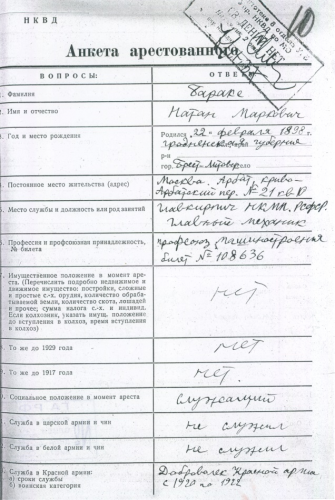 10
НКВД
Анкета арестованного
ВОПРОСЫ:
ОТВЕТЫ
1. Фамилия
Бараке
2. Имя и отчество
Натан Маркович
3. Год и место рождения
Родился 22 февраля 1892 г.
гродненская губерния
р-н
гор. Брест-Литовск село
4. Постоянное место жительства (адрес)
Москва, Арбат, Криво-
Арбатский пер. № 21 кв
5. Место службы и должность или род занятий
Главкирпич НКМП. РСФСР.
Главный механик
6. Профессия и профсоюзная принадлежность,
№ билета
профсоюз Машиностроения
билет № 108636
7. Имущественное положение в момент аре-
ста. (Перечислить подробно недвижимое и
движимое имущество: постройки, сложные
и простые с.-х. орудия, количество обраба-
тываемой земли, количество скота, лошадей
и прочее; сумма налога с.-х. и индивид.
Если колхозник, указать имущ. положение
до вступления в колхоз, время вступления
в колхоз)
нет
То же до 1929 года
нет
То же до 1917 года
нет.
Социальное положение в момент ареста
Служащий
Служба в царской армии и чин
не служил
Служба в белой армии и чин
не служил
Служба в Красной армии:
а) сроки службы
б) воинская категория
Доброволец Красной армии
с 1920 по 1922